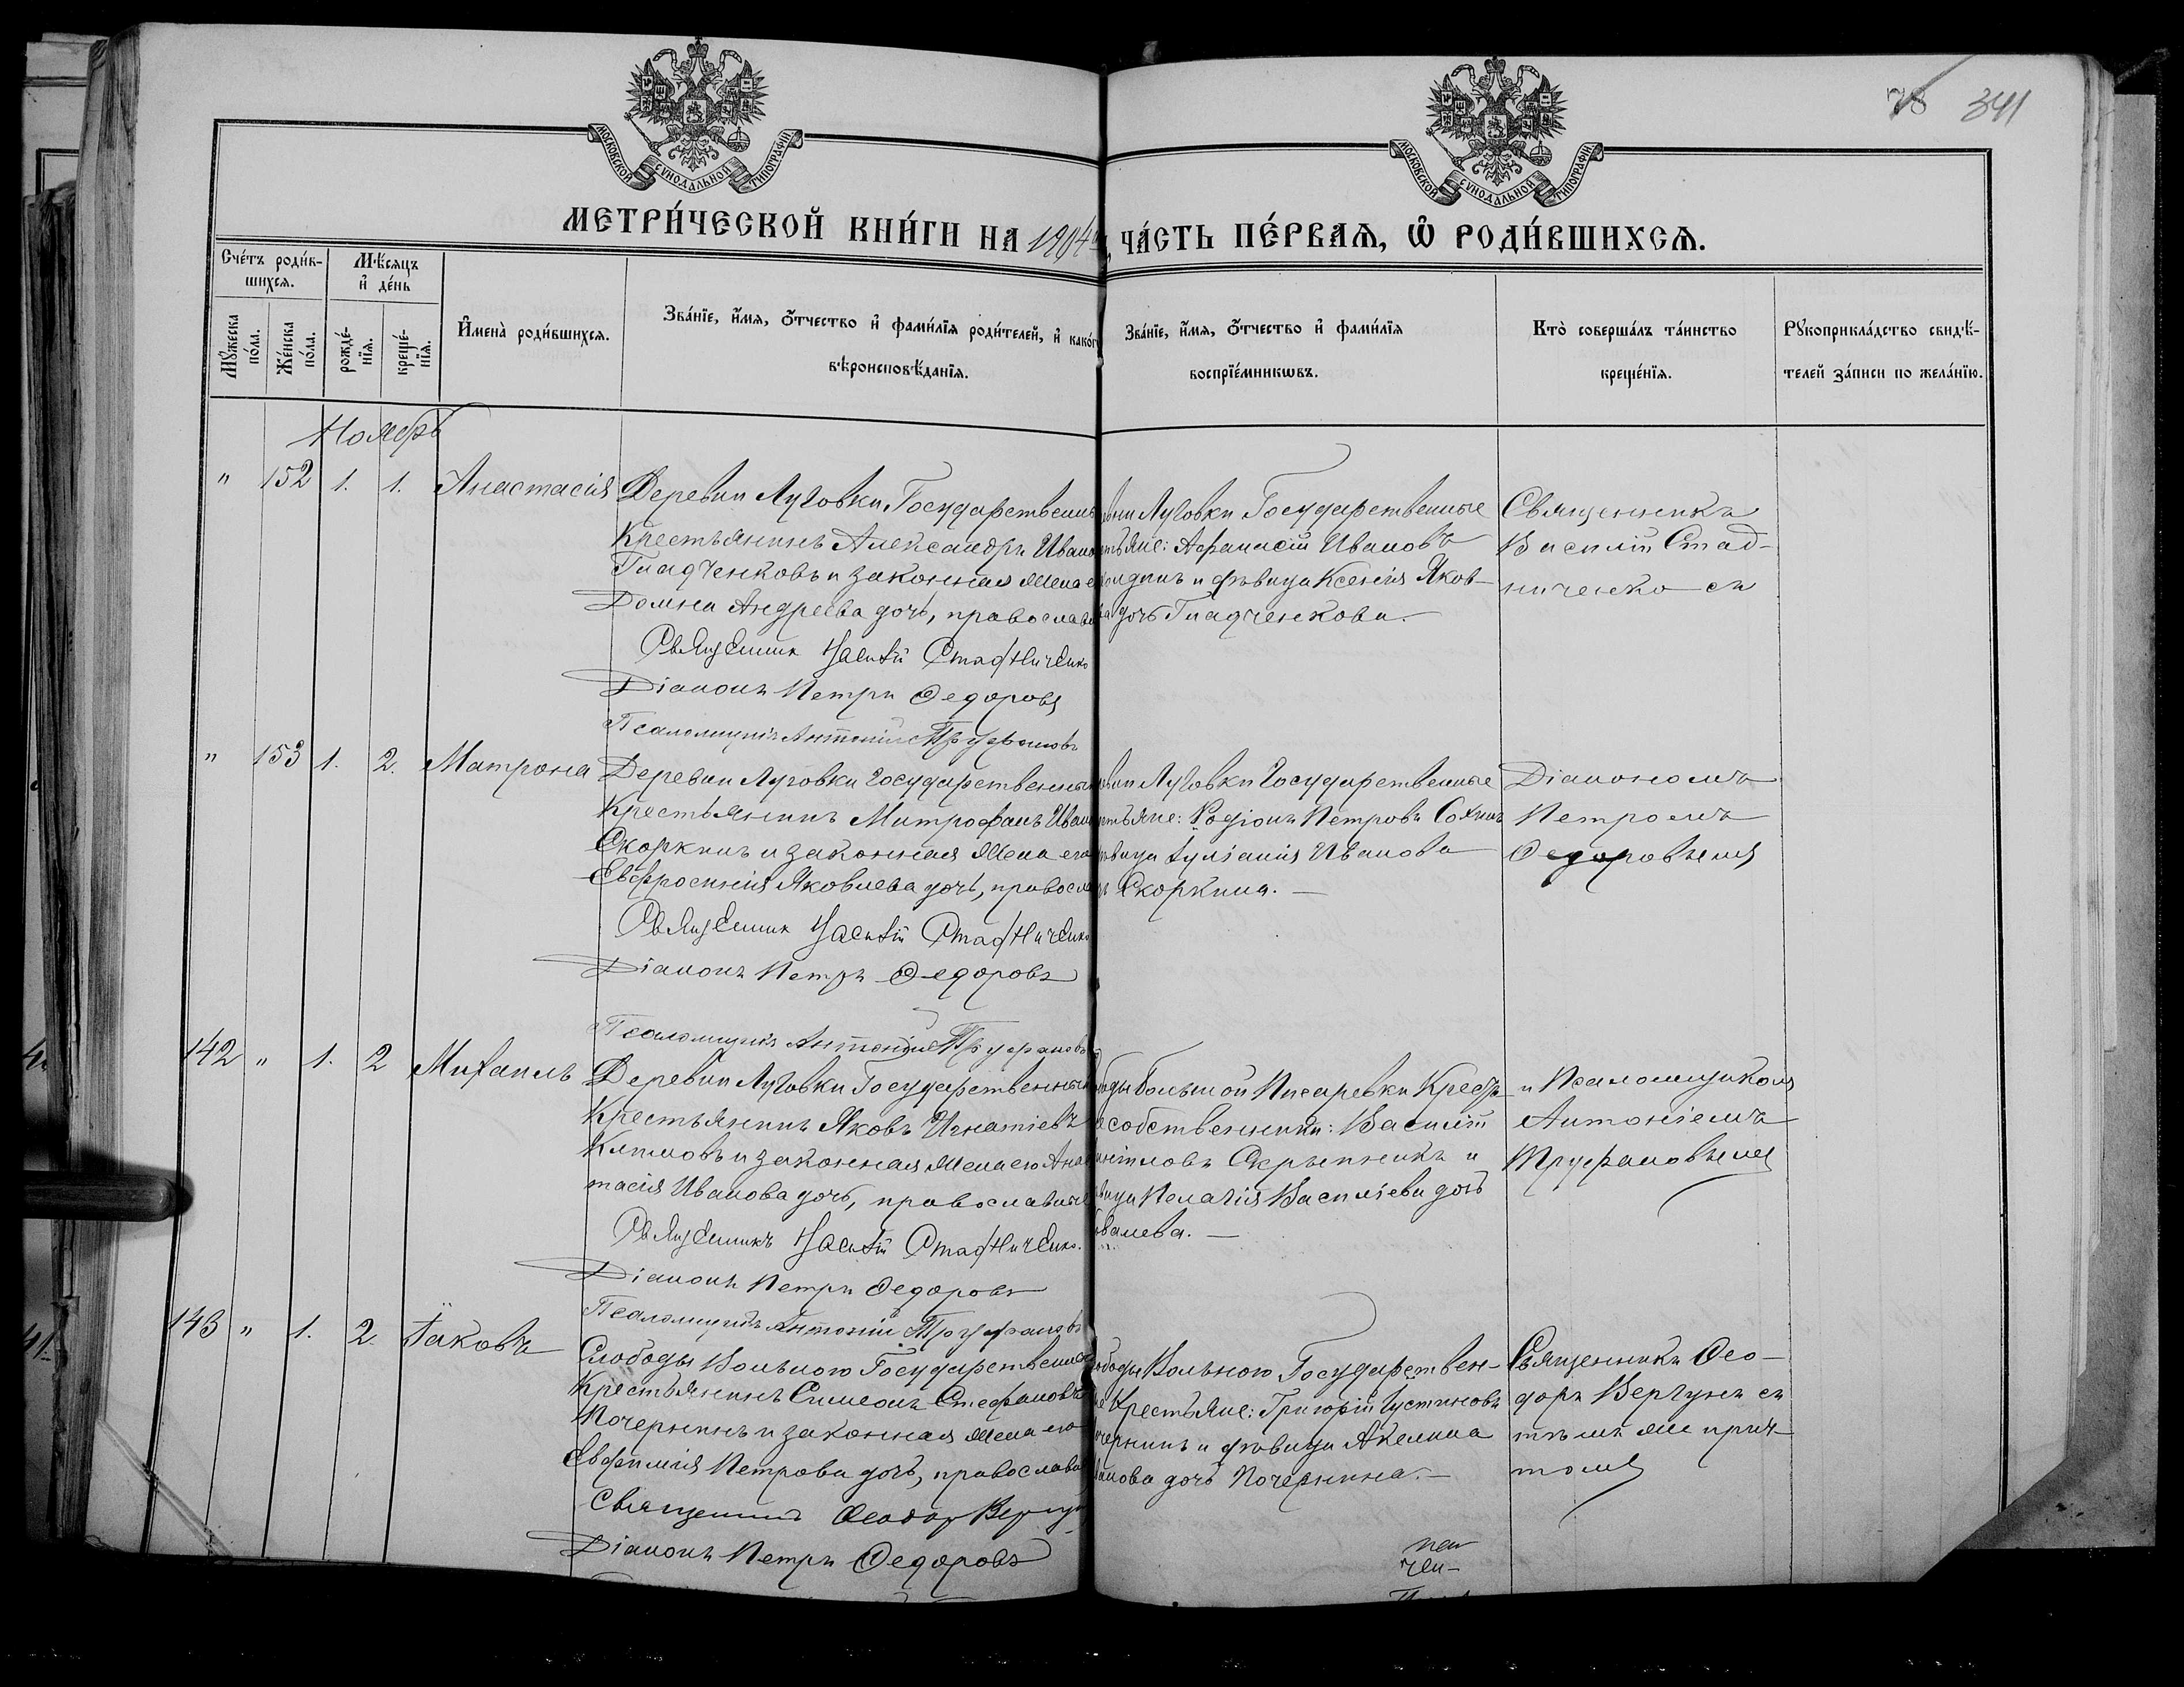 78 341
МОСКОВСКОЙ СѴНОДАЛЬНОЙ ТИПОГРАФІИ
МОСКОВСКОЙ СѴНОДАЛЬНОЙ ТИПОГРАФІИ
МЕТРИ́ЧЕСКОЙ КНИ́ГИ НА 1904
ЧА́СТЬ ПЕ́РВАѦ, Ѡ҆ РОДИ́ВШИХСѦ.
Сче́тъ роди́в-
шихсѧ.
Мѣ́сѧцъ
и҆ де́нь
Мꙋ́жеска
по́ла.
Же́нска
по́ла.
рожде́-
нїѧ.
креще́-
нїѧ.
И҆мена̀ роди́вшихсѧ.
Зва́нїе, и҆́мѧ, ѻ҆́тчество и҆ фами́лїѧ роди́телей, и҆ како́г
вѣроисповѣ́данїѧ.
Зва́нїе, и҆́мѧ, ѻ҆́тчество и҆ фами́лїѧ
воспрїе́мникѡвъ.
Кто̀ соверша́лъ та́инство
креще́нїѧ.
Рꙋкоприкла́дство свидѣ́-
телей за́писи по жела́нїю.
Ноябрь
" 152 1. 1. Анастасія
Деревни Луговки, Государственн
Крестьянинъ Александръ Ивано
Гладченковъ и законная жена е
Домна Андреева дочь, православ
Священник Василій Стадниченко
Діаконъ Петръ Федоровъ
Псаломщикъ Антоній Труфановъ
вни Луговки Государственные
тьяне: Афанасій Ивановъ
и дѣвица Ксенія Яков-
ва дочь Гладченкова.
Священникъ
Василій Стад-
ниченко съ
" 153 1. 2. Матрона
Деревни Луговки Государственны
Крестьянинъ Митрофанъ Иван
Скоркинъ и законная жена его
Евфросинія Яковлева дочь, правосла
Священник Василій Стадниченко
Діаконъ Петръ Федоровъ
Псаломщикъ Антоній Труфановъ
вни Луговки Государственные
тьяне: Родіонъ Петровъ
вица Іуліанія Иванова
ь Скоркина.
Діакономъ
Петромъ
Федоровымъ
142 " 1. 2 Михаилъ
Деревни Луговки Государственный
Крестьянинъ Яковъ Игнатіевъ
и законная жена его Анас
тасія Иванова дочь, православные
Священникъ Василій Стадниченко.
Діаконъ Петръ Федоровъ
Псаломщикъ Антоній Труфановъ
боды Большой Писаревки Крестья
е собственники: Василій
Скрыпникъ и
вица Пелагія Василіева дочь
овалева.
и Псаломщикомъ
Антоніемъ
Труфановымъ
143 " 1. 2. Іаковъ
Слободы Вольного Государственный
Крестьянинъ Симеонъ Стефановъ
Почернинъ и законная жена его
Евфимія Петрова дочь, православ
Священник Феодор Вергун
Діаконъ Петръ Федоровъ
ободы Вольного Государствен-
ые Крестьяне: Григорій Іустиновъ
чернинъ и дѣвица Акелина
анова дочь Почернина.
Священникъ Фео-
доръ Вергунъ съ
тѣмъ же прич-
томъ